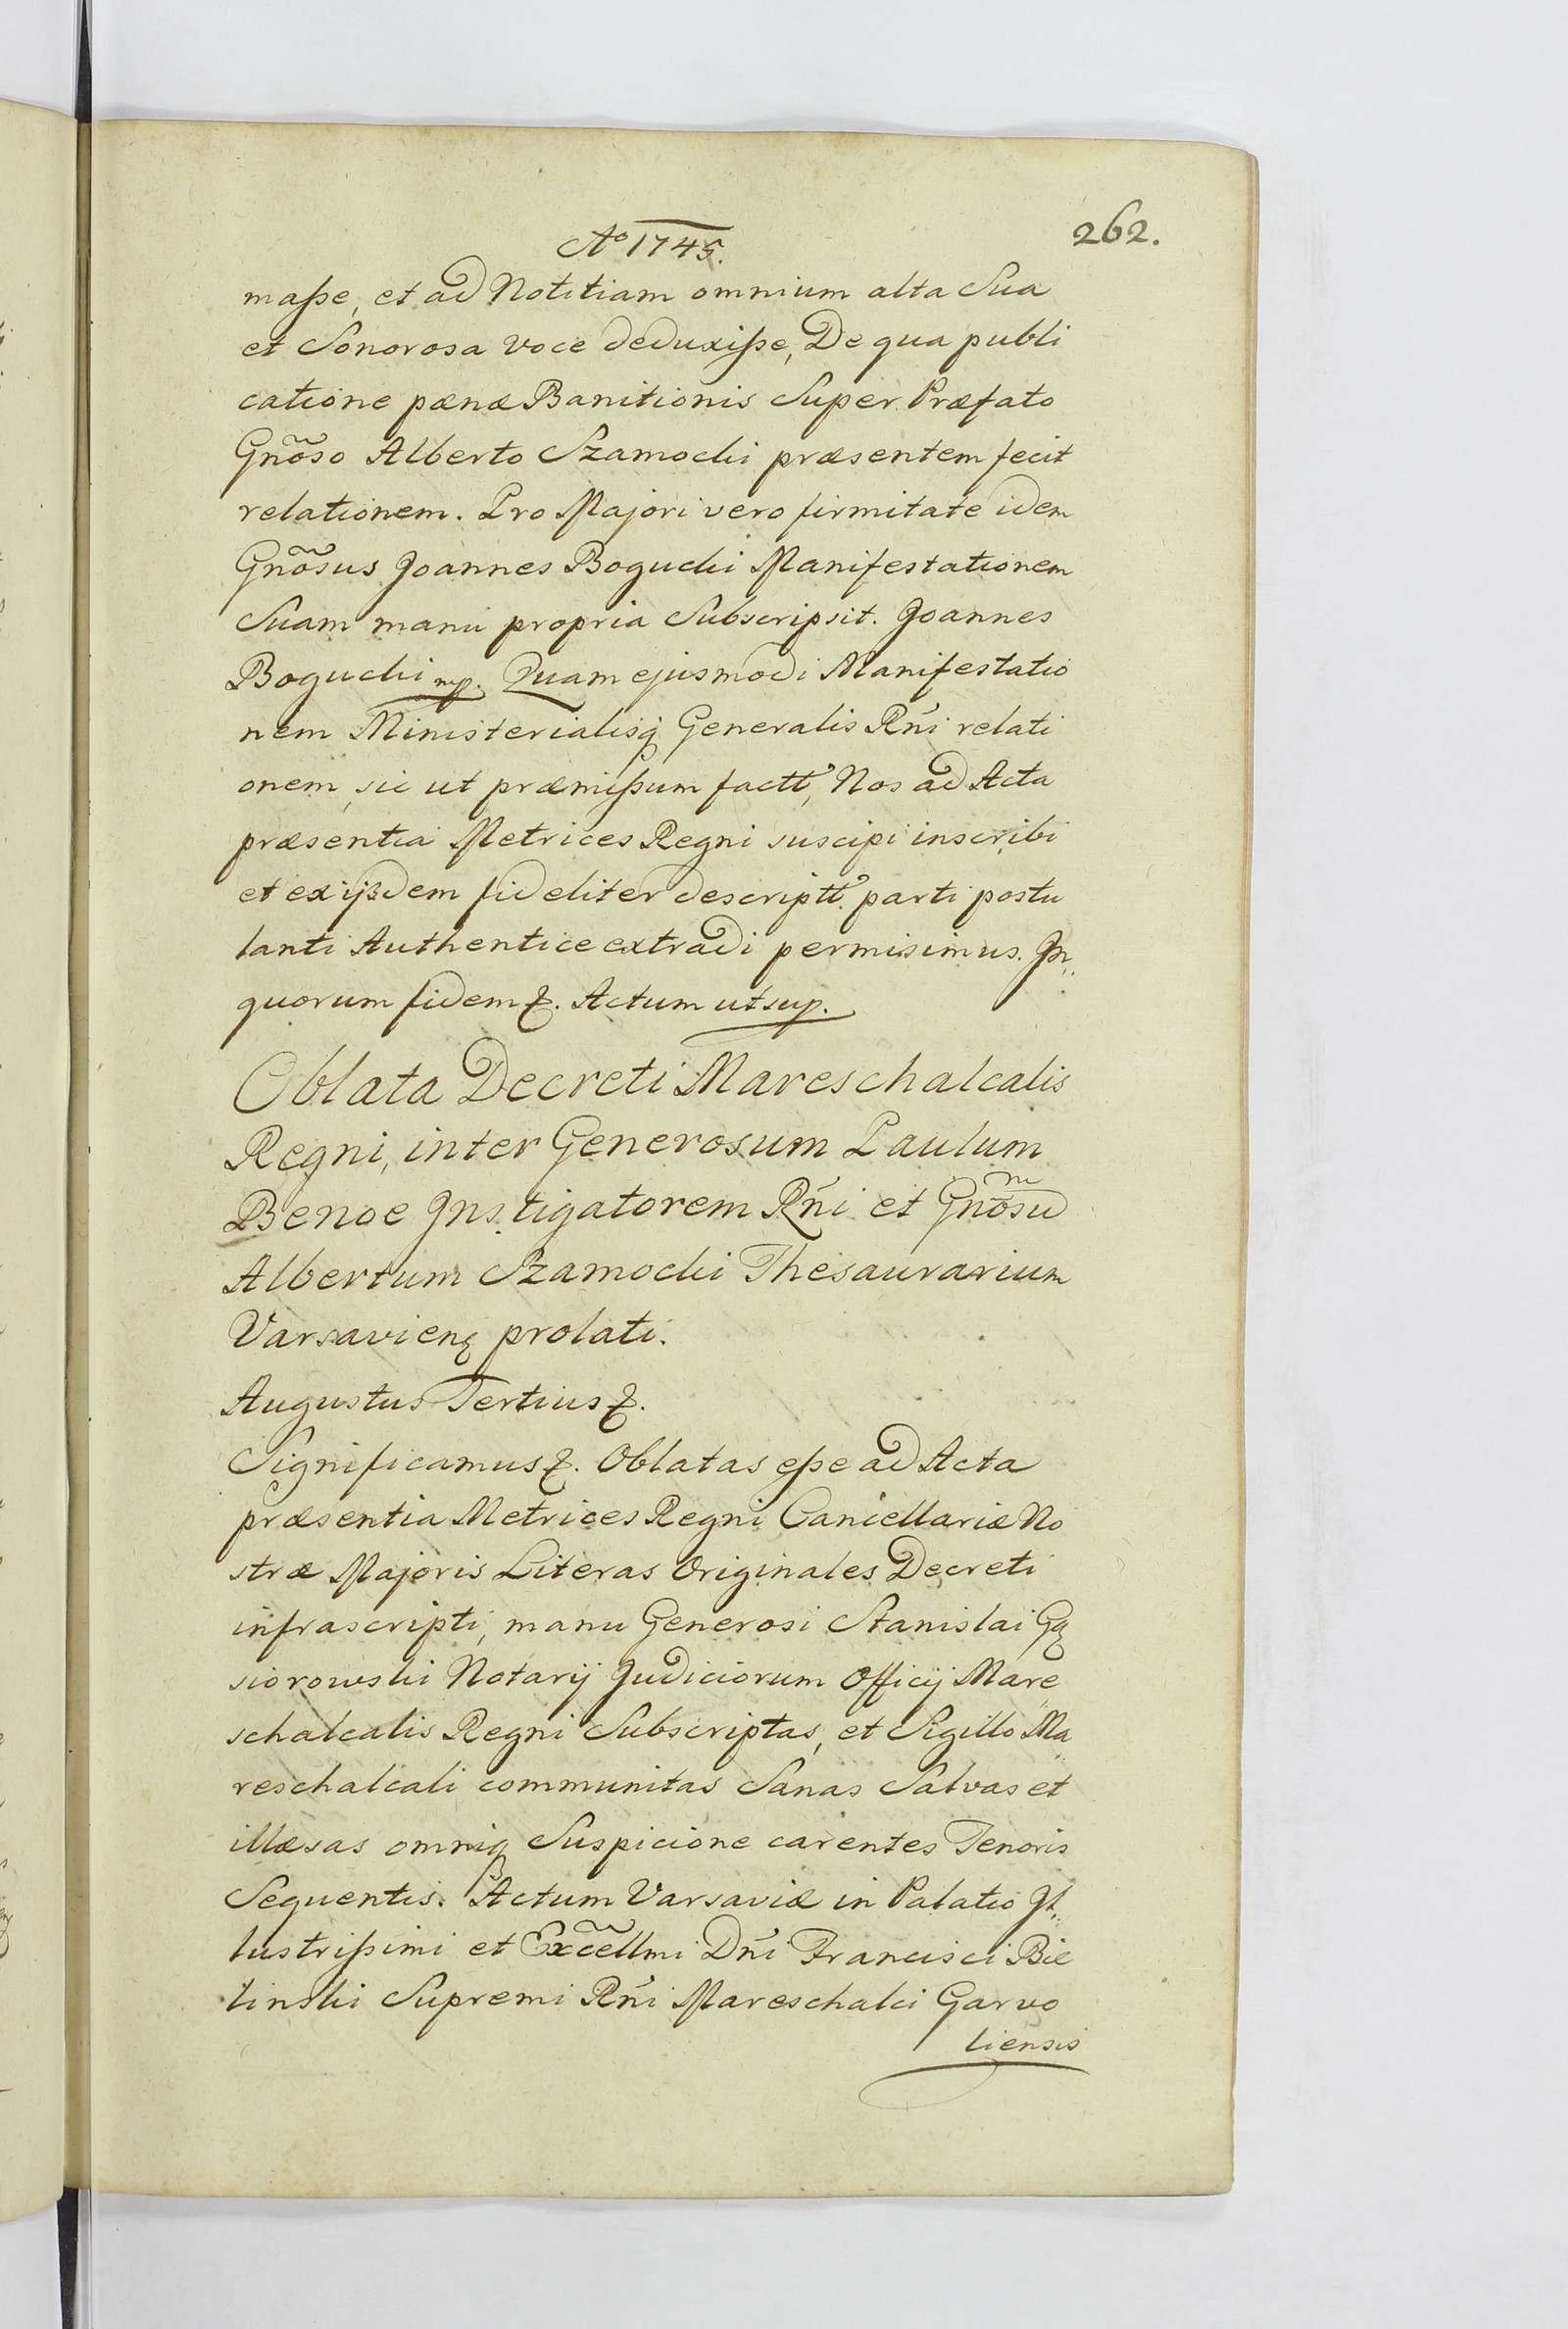 262.
Aº 1745.
maſse, et ad Notitiam omnium alta Sua
et Sonorosa voce deduxiſse, De qua publi
catione pænæ Banitionis Super Præfato
Gnõso Alberto Szamocki præsentem fecit
relationem. Pro Majori vero firmitate idem
Gnõsus Joannes Bogucki Manifestationem
Suam manu propria Subscripsit. Joannes
Bogucki mp. Quam ejusmodi Manifestatio
nem Ministerialisq̃ Generalis Rńi relati
onem, sic ut præmiſsum factt, Nos ad Acta
præsentia Metrices Regni suscipi inscribi
et ex ijsdem fideliter descriptt. parti postu
lanti Authentice extradi permisimus. In„
quorum fidem &. Actum ut sup.
Oblata Decreti Mareschalcalis
Regni, inter Generosum Paulum
Benoe Instigatorem Rńi et Gnõsũ
Albertum Szamocki Thesaurarium
Varsavienꝫ prolati.
Augustus Tertius &.
Significamus &. Oblatas eſse ad Acta
præsentia Metrices Regni Cancellariæ No
stræ Majoris Literas Originales Decreti
infrascripti, manu Generosi Stanislai Gą
siorowski Notarij Judiciorum Officij Mare
schalcalis Regni Subscriptas, et Sigillo Ma„
reschalcali communitas Sanas Salvas et
illæsas omniq̃ Suspicione carentes Tenoris
Sequentis. Actum Varsaviæ in Palatio Il„
lustriſsimi et Excẽllmi Dńi Francisci Bie
linski Supremi Rńi Mareschalci Garvo
liensis